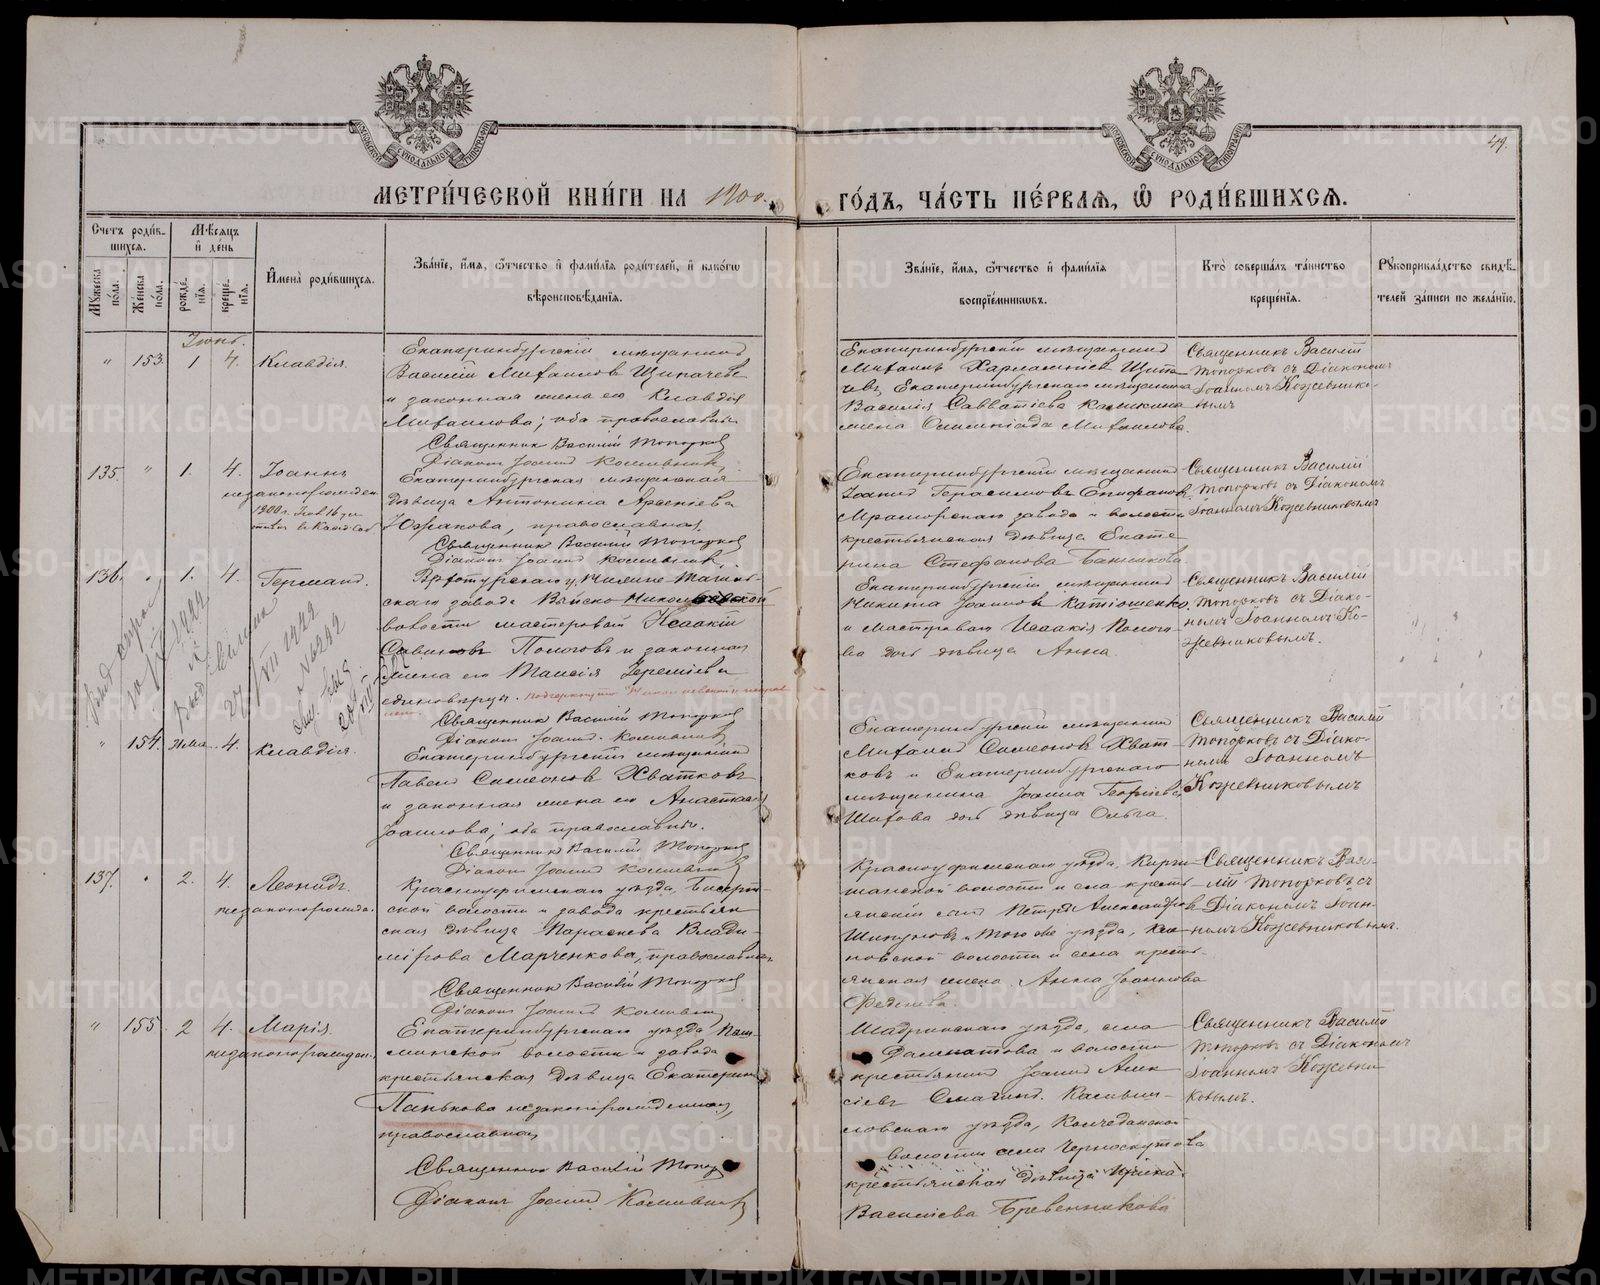 МЕТРИ́ЧЕСКОЙ КНИ́ГИ НА 1900.
ГО́ДЪ, ЧА́СТЬ ПЕ́РВАѦ, Ѽ РОДИ́ВШИХСѦ.
49.
Счетъ роди́вшихся.
Мѣсяцъ и де́нь
Мꙋжеска по́ла.
Же́нска по́ла.
рожде́нїѧ.
креще́нїѧ.
Имена̀ роди́вшихсѧ.
Зва́нїе, и́мѧ, ѻ́тчество и фами́лїѧ роди́телей, и како́гѡ
вѣроисповѣ́данїѧ.
Зва́нїе, и́мѧ, ѻ́тчество и фами́лїѧ
воспрїе́мниковъ.
Кто̀ соверша́лъ та́инство
креще́нїѧ.
Рꙋкоприкла́дство свидѣ́телей за́писи по жела́нїю.
Іюнь.
" 153. 1 4. Клавдія
Екатеринбургскій мѣщанинъ
Василій Михаиловъ Щипачевъ
и законная жена его Клавдія
Михаилова; оба православные
Священникъ Василій Топорковъ
Діаконъ Іоаннъ Кожевников
Екатеринбургскій мѣщанинъ
Михаилъ Харлампіевъ Щипа
чевъ, Екатеринбургскаго мѣщанина
Василія Савватіева Калинина
жена Олимпіада Михаилова.
Священникъ Василій
Топорковъ съ Діакономъ
Іоанномъ Кожевнико-
вымъ
135 " 1. 4. Іоаннъ
незаконорожден.
Екатеринбургская мѣщанская
дѣвица Антонина Арсеніева
православная.
Священникъ Василій Топорковъ
Діаконъ Іоаннъ Кожевников
Екатеринбургскій мѣщанинъ
Іоаннъ Герасимовъ Епифановъ,
Мраморскаго завода и волости
крестьянская дѣвица Екате
рина Стефанова
Священникъ Василій
Топорковъ съ Діакономъ
Іоанномъ Кожевниковымъ
136. " 1. 4. Германъ.
Верхотурскаго у. Нижне Тагиль-
скаго завода
волости мастеровой Исаакій
Савиновъ Пологовъ и законная
жена его Таисія Іереміева
единовѣрцы.
Священникъ Василій Топорковъ
Діаконъ Іоаннъ Кожевников
Екатеринбургскій мѣщанинъ
Никита Іоанновъ Катюшенко,
и мастероваго Исаакія Полого
ва дочь дѣвица Анна.
Священникъ Василій
Топорковъ съ Діако-
номъ Іоанномъ Ко-
жевниковымъ.
" 154. 4. Клавдія.
Екатеринбургскій мѣщанинъ
Павелъ Симеоновъ Хватковъ
и законная жена его Анастасія
Іоаннова; оба православные.
Священникъ Василій Топорковъ
Діаконъ Іоаннъ Кожевников
Екатеринбургскій мѣщанинъ
Михаилъ Симеоновъ Хват
ковъ и Екатеринбургскаго
мѣщанина Іоанна Георгіева
дочь дѣвица Ольга.
Священникъ Василій
Топорковъ съ Діако-
номъ Іоанномъ
Кожевниковымъ
137. " 2. 4. Леонидъ.
незаконорожд.
Красноуфимскаго уѣзда, Бисерт
ской волости и завода крестьян
ская дѣвица Параскева Влади-
мірова Марченкова, православная
Священникъ Василій Топорковъ
Діаконъ Іоаннъ Кожевников
Красноуфимскаго уѣзда, Кирги
шанской волости и села кресть
янскій сынъ Петръ Александровъ
Шипуновъ, и того же уѣзда, Кле
новской волости и села кресть
янская жена Анна Іоаннова
Священникъ Васи-
лій Топорковъ съ
Діакономъ Іоан-
номъ Кожевниковымъ.
" 155 2 4. Марія
незаконорожден.
Екатеринбургскаго уѣзда Пыш
минской волости и завода
крестьянская дѣвица Екатерина
Панькова незаконорожденная,
православная
Священникъ Василій Топорковъ
Діаконъ Іоаннъ Кожевников
Шадринскаго уѣзда, села
Далматова и волости
крестьянинъ Іоаннъ Алек
сіевъ Смагинъ. Камыш-
ловскаго уѣзда, Колчеданской
волости села Черноскутова
крестьянская дѣвица Ирина
Василіева Бревенникова
Священникъ Василій
Топорковъ съ Діакономъ
Іоанномъ Кожевни
ковымъ.
METRIKI.GASO-URAL.RU